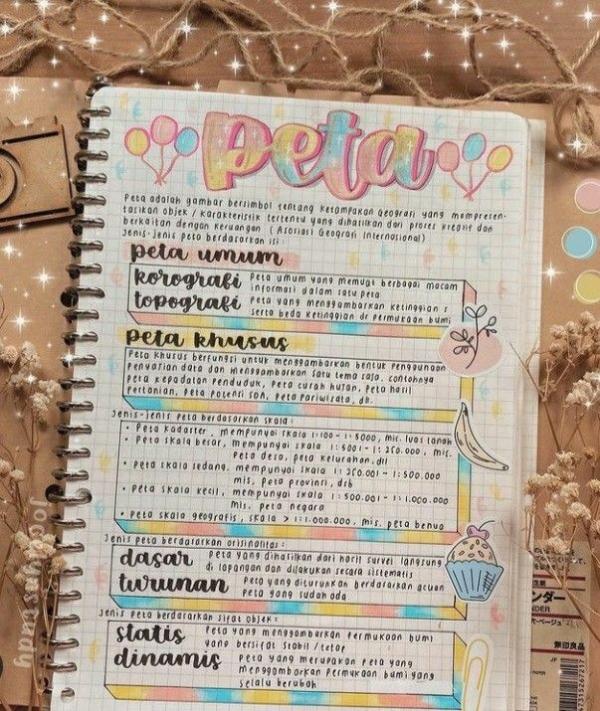 peta
Peta adalah gambar bersimbol tentang ketampakan geografi yang mempresen-
tasikan objek / karakteristik tertentu yang dihasilkan dari proses kreatif dan
berkaitan dengan keruangan (Asosiasi Geografi Internasional)
Jenis-jenis peta berdasarkan isi:
peta umum
korografi Peta umum yang memuat berbagai macam
informasi dalam satu peta
topografi Peta yang menggambarkan ketinggian &
serta beda ketinggian di permukaan bumi
peta khusus
Peta khusus berfungsi untuk menggambarkan bentuk penggunaan
penyajian data dan menggambarkan satu tema saja. contohnya
peta kepadatan penduduk, peta curah hujan, peta hasil
pertanian, peta potensi SDA, peta pariwisata, dll.
Jenis-jenis peta berdasarkan skala:
• Peta kadaster, mempunyai skala 1:100 - 1:5000, mis. luas tanah
• Peta skala besar, mempunyai skala 1:5001 - 1:250.000, mis.
Peta desa, peta kelurahan, dll
• Peta skala sedang, mempunyai skala 1:250.001 - 1:500.000
mis. peta provinsi, dsb
• Peta skala kecil, mempunyai skala 1:500.001 - 1:1.000.000
mis. peta negara
• Peta skala geografis, skala > 1:1.000.000, mis. peta benua
Jenis peta berdasarkan orisinalitas:
dasar Peta yang dihasilkan dari hasil survei langsung
di lapangan dan dilakukan secara sistematis
turunan Peta yang diturunkan berdasarkan acuan
peta yang sudah ada
Jenis peta berdasarkan sifat objek:
statis Peta yang menggambarkan permukaan bumi
yang bersifat stabil / tetap
dinamis Peta yang merupakan peta yang
menggambarkan permukaan bumi yang
selalu berubah
ンダー
無印良品
JP